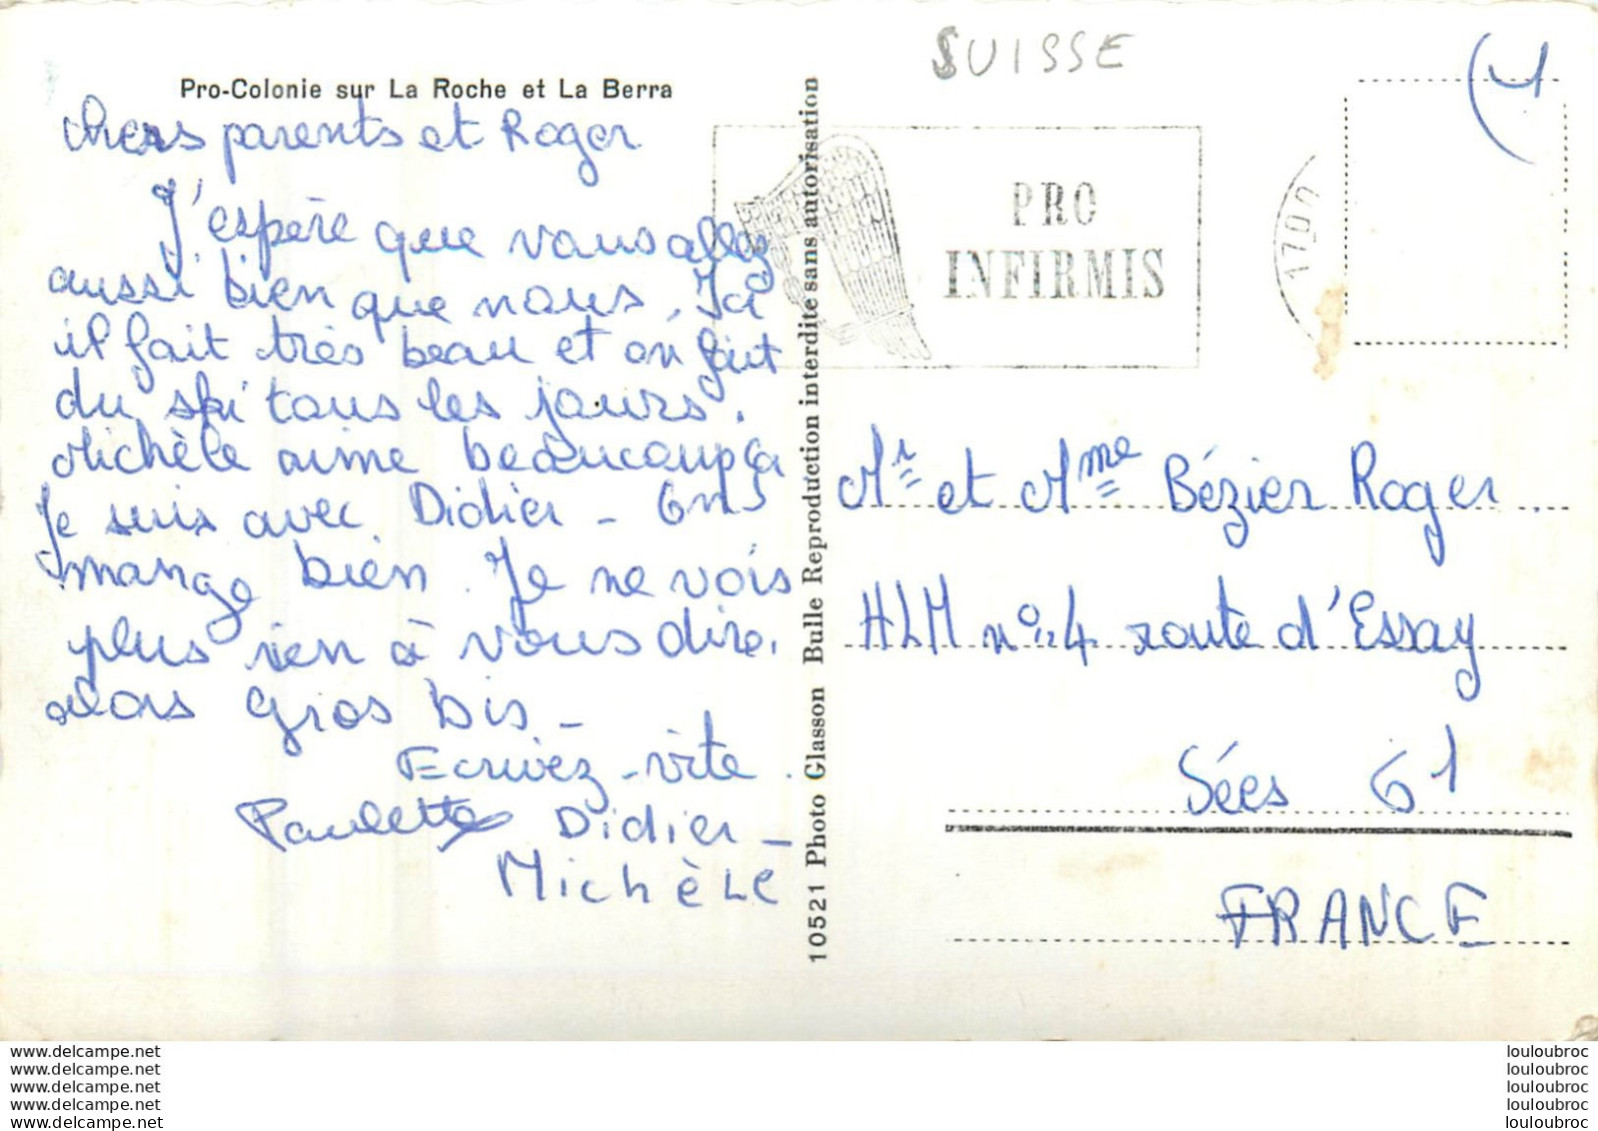 SUISSE
Pro-Colonie sur La Roche et La Berra
chers parents et Roger
J'espère que vous allez
aussi bien que nous. Ici
il fait très beau et on fait
du ski tous les jours.
Michèle aime beaucoup ça
Je suis avec Didier - On
mange bien. Je ne vois
plus rien à vous dire.
alors gros bis -
Ecrivez-vite.
Paulette Didier -
Michèle
10521 Photo Glasson Bulle Reproduction interdite sans autorisation
PRO
INFIRMIS
1700
Mr et Mme Bézier Roger
HLM n° 4 route d'Essay
Sées 61
FRANCE
www.delcampe.net
www.delcampe.net
www.delcampe.net
www.delcampe.net
www.delcampe.net
louloubroc
louloubroc
louloubroc
louloubroc
louloubroc